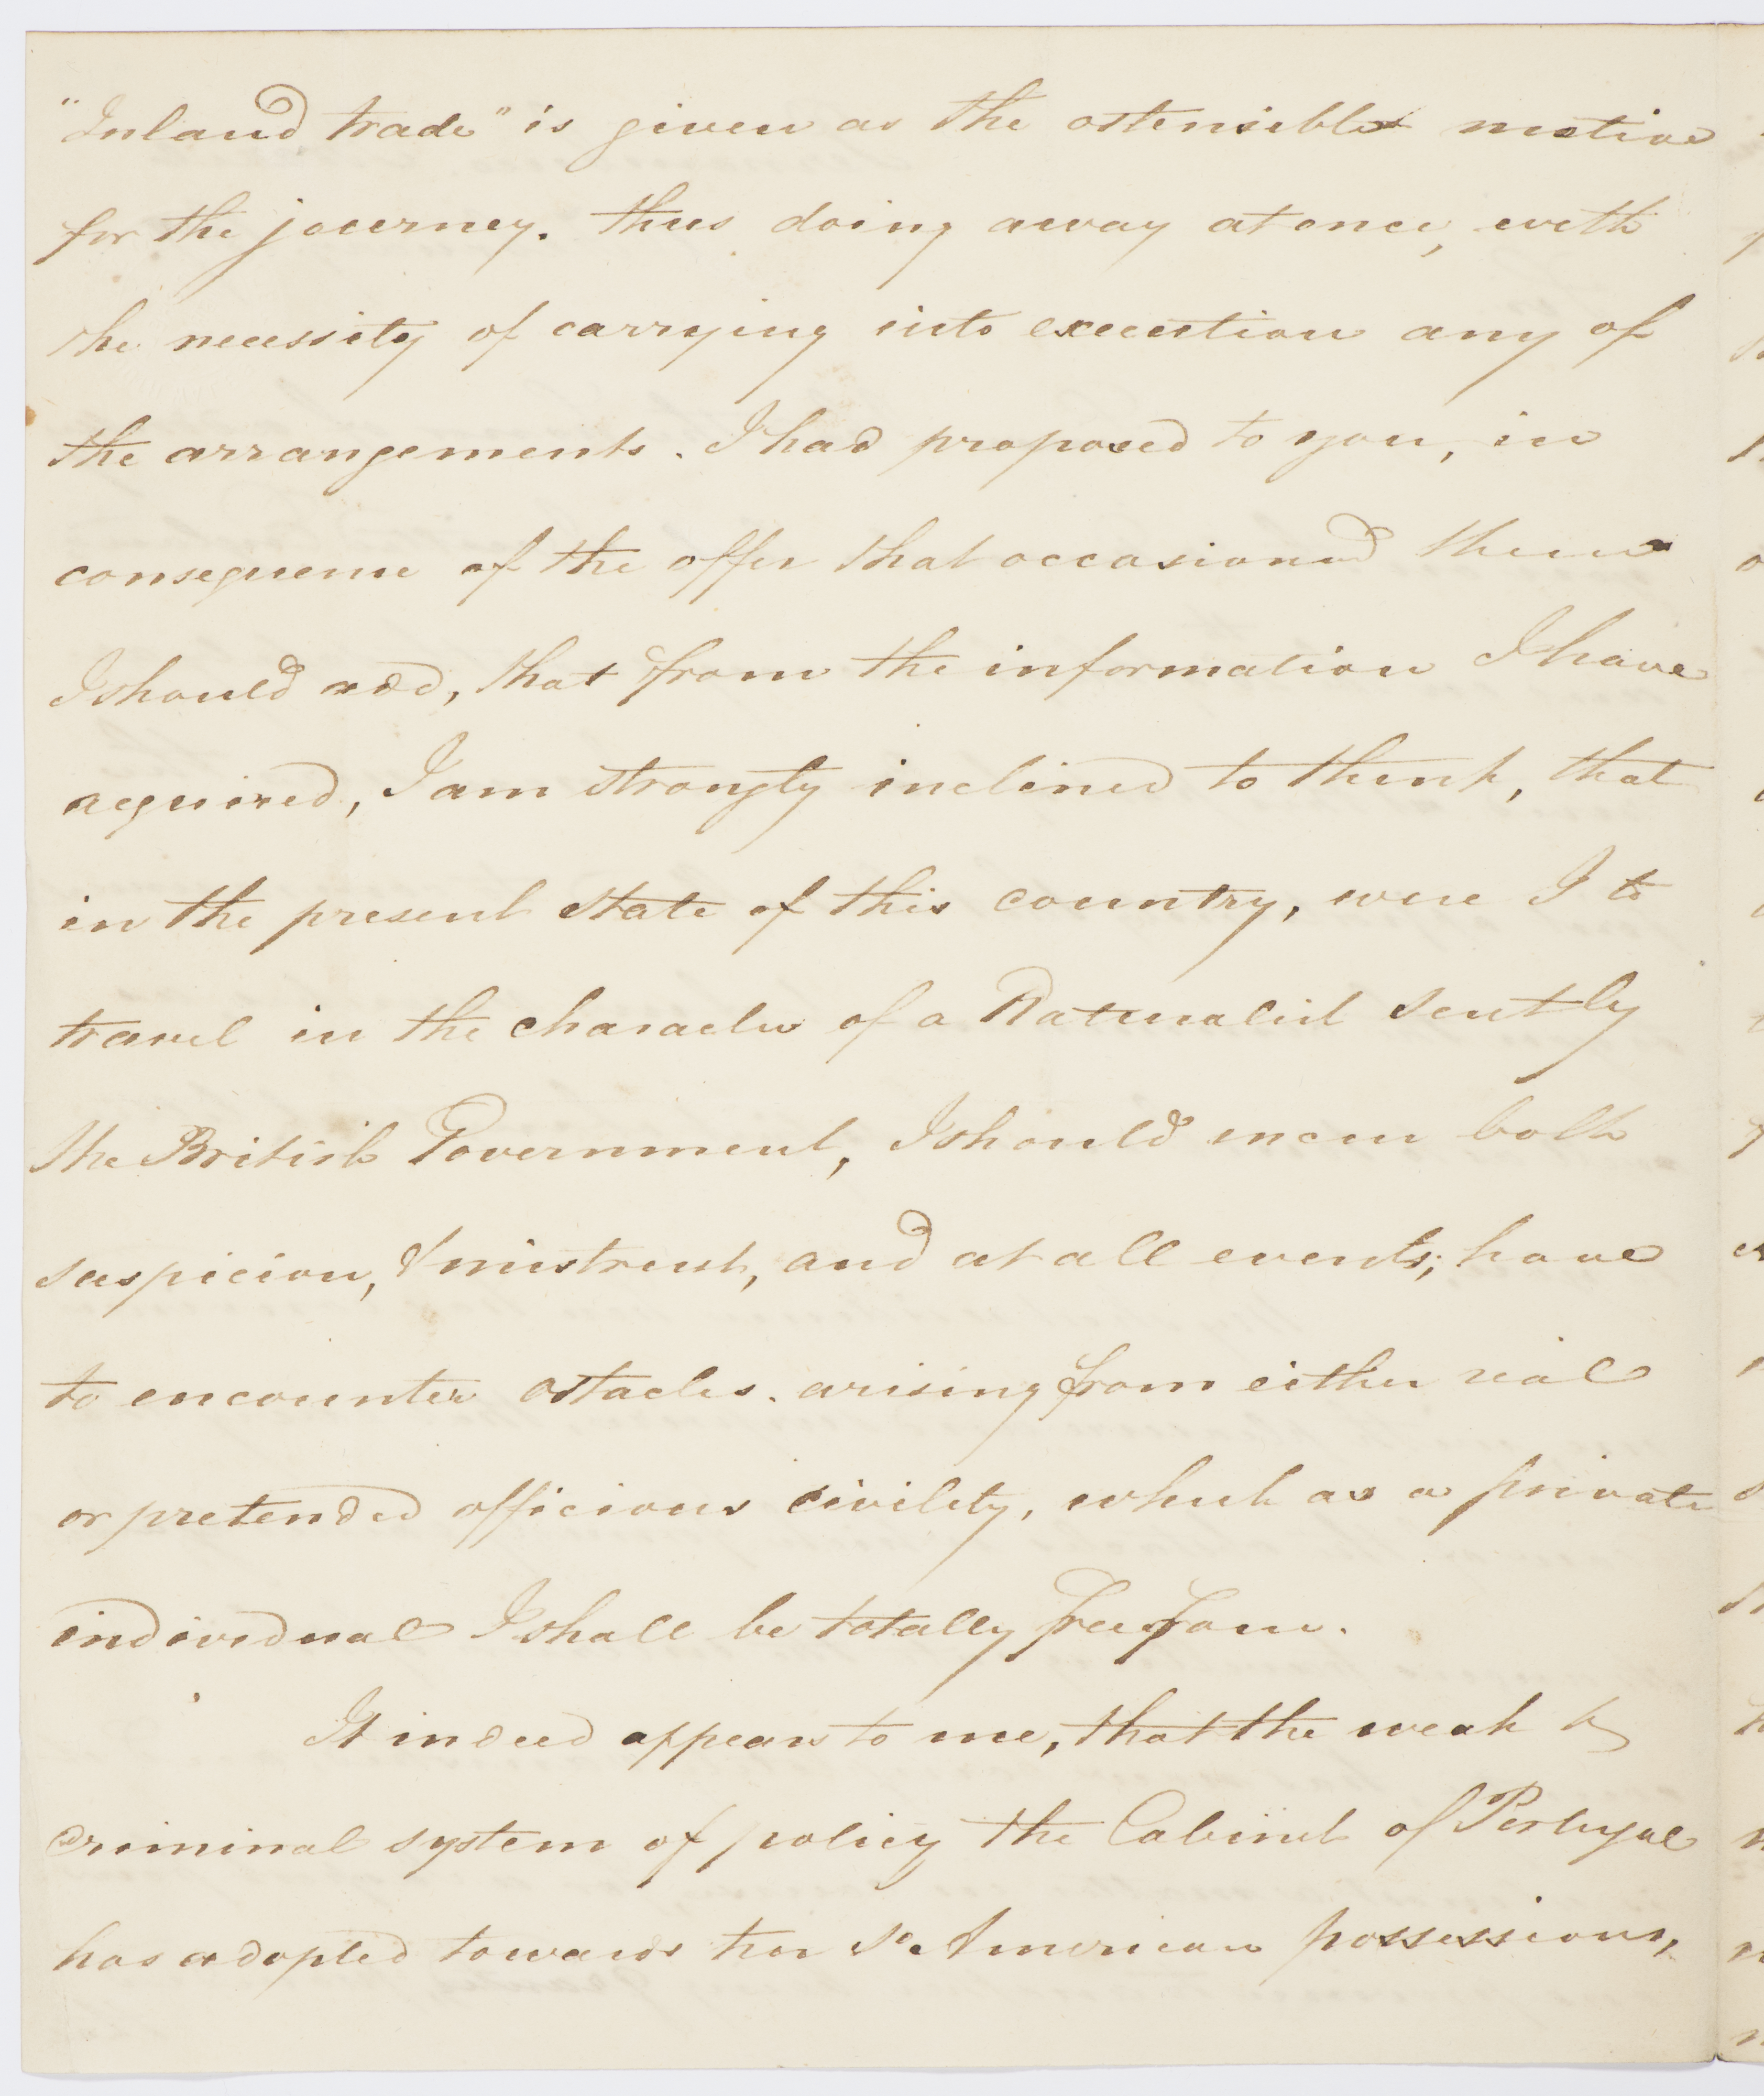 "Inland trade" is given as the ostensible motive
for the journey. thus doing away at once, with
the necessity of carrying into execution any of
the arrangements. I had proposed to you, in
consequence of the offer that occasioned them
I should add, that from the information I have
acquired, I am strongly inclined to think, that
in the present state of this country, were I to
travel in the character of a Naturalist sent by
the British Government, I should incur both
suspicion, & mistrust, and at all events; have
to encounter ostacles. arising from either real
or pretended officious civility, which as a private
individual I shall be totally free from.
It indeed appears to me, that the weak &
criminal system of policy the Cabinet of Portugal
has adopted towards her So American possessions,